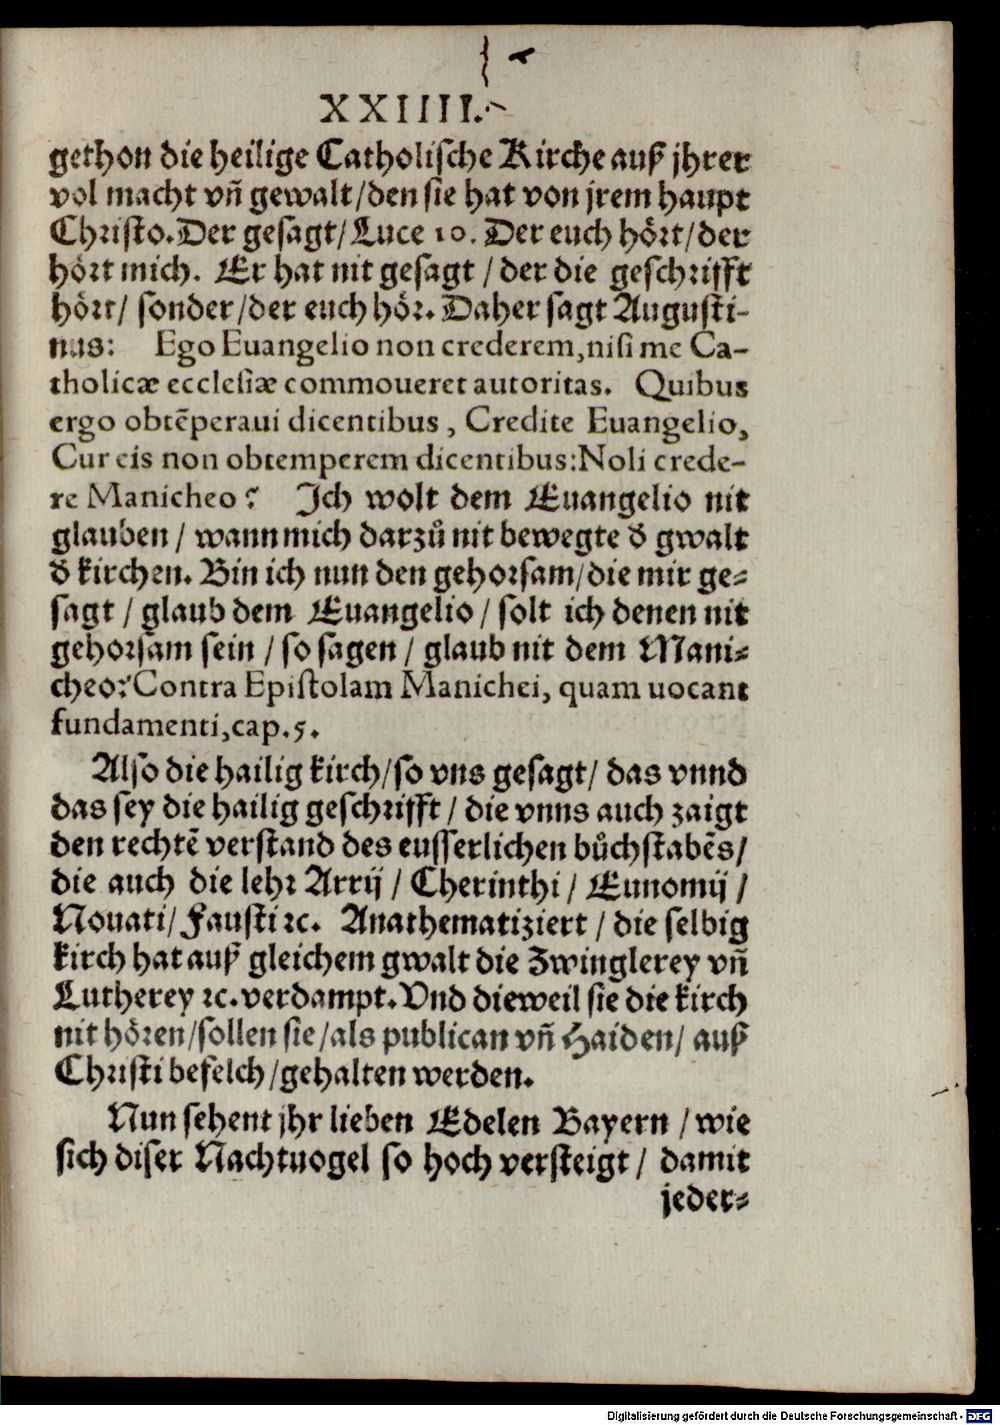 XXIIII.
gethon die heilige Catholische Kirche auß jhrer
vol macht vñ gewalt/den sie hat von jrem haupt
Christo. Der gesagt/ Luce 10. Der euch hört/der
hört mich. Er hat nit gesagt / der die geschrifft
hört/ sonder/der euch hör. Daher sagt Augusti-
nus: Ego Euangelio non crederem, nisi me Ca-
tholicæ ecclesiæ commoueret autoritas. Quibus
ergo obtēperaui dicentibus, Credite Euangelio,
Cur eis non obtemperem dicentibus: Noli crede-
re Manicheo? Ich wolt dem Euangelio nit
glauben / wann mich darzů nit bewegte d̕ gwalt
d̕ kirchen. Bin ich nun den gehorsam/die mir ge-
sagt / glaub dem Euangelio / solt ich denen nit
gehorsam sein / so sagen / glaub nit dem Mani-
cheo? Contra Epistolam Manichei, quam uocant
fundamenti, cap. 5.
Also die hailig kirch/so vns gesagt/ das vnnd
das sey die hailig geschrifft / die vnns auch zaigt
den rechtē verstand des eusserlichen bůchstabēs/
die auch die lehr Arrij / Cherinthi / Eunomij /
Nouati/ Fausti ꝛc. Anathematiziert / die selbig
kirch hat auß gleichem gwalt die Zwinglerey vñ
Lutherey ꝛc. verdampt. Vnd dieweil sie die kirch
nit hören/sollen sie/als publican vñ Haiden/ auß
Christi befelch/gehalten werden.
Nun sehent jhr lieben Edelen Bayern / wie
sich diser Nachtuogel so hoch versteigt / damit
jeder-
Digitalisierung gefördert durch die Deutsche Forschungsgemeinschaft - DFG